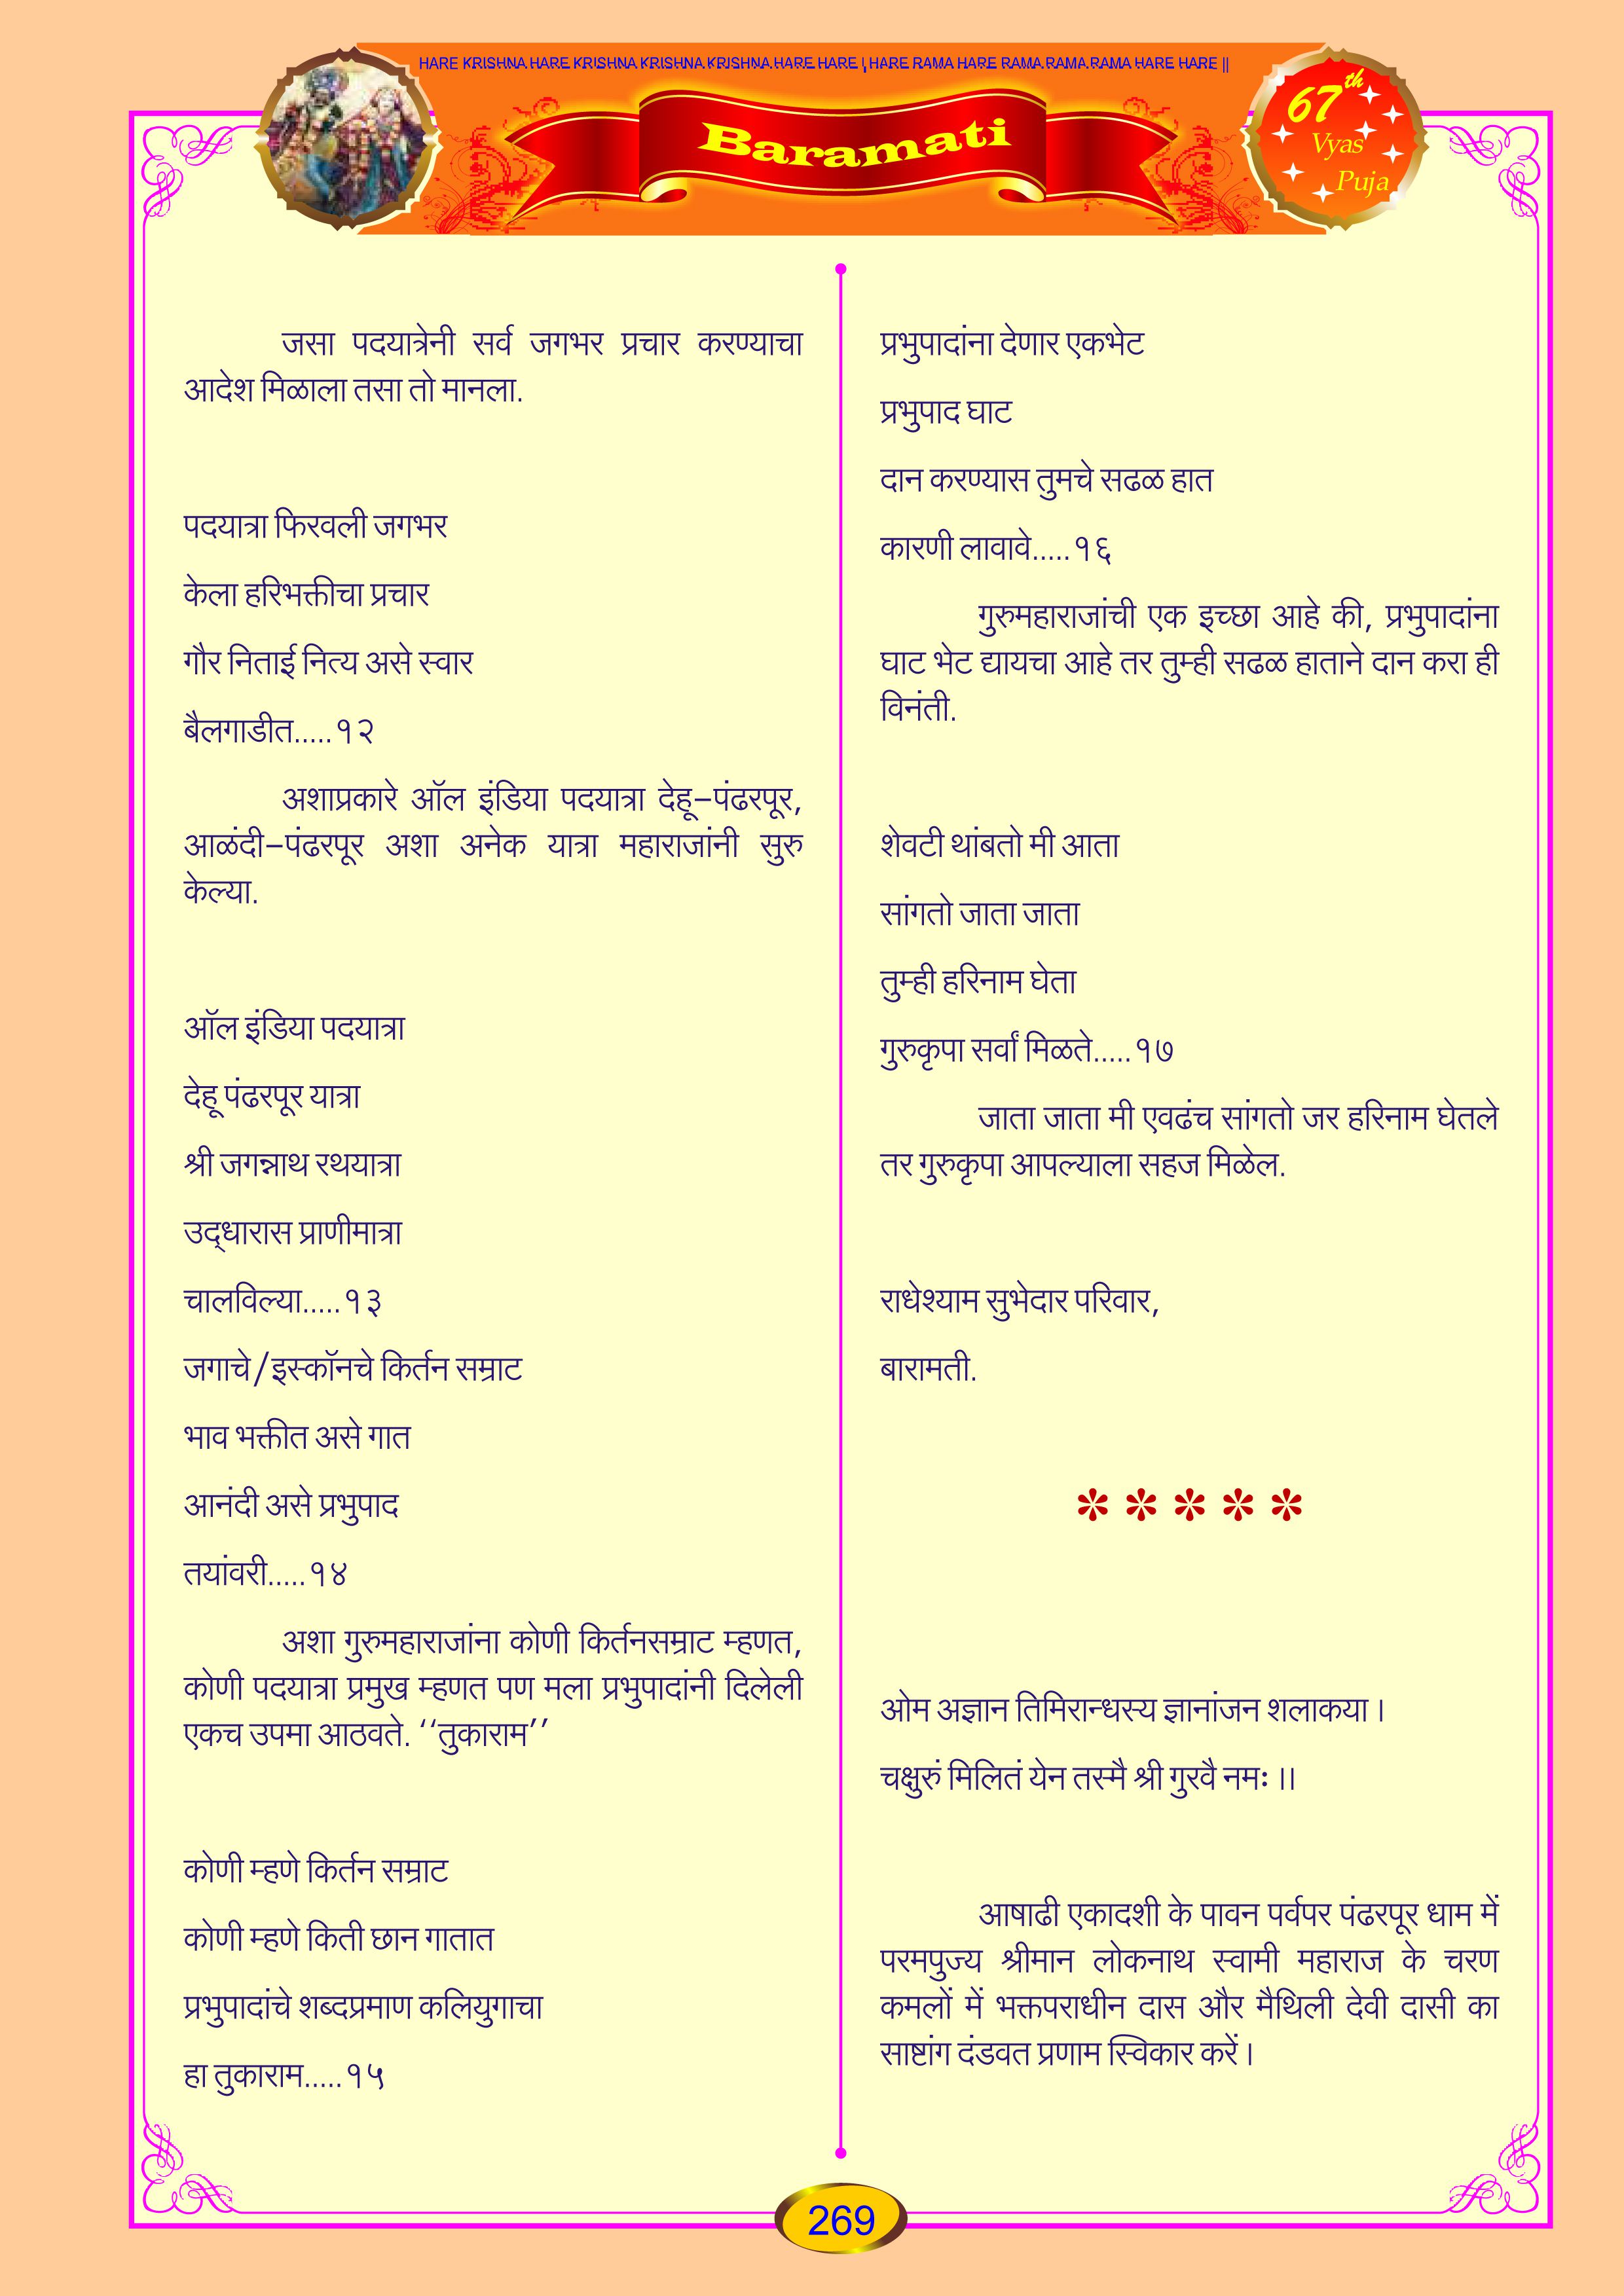 HARE KRISHNA HARE KRISHNA KRISHNA KRISHNA HARE HARE | HARE RAMA HARE RAMA RAMA RAMA HARE HARE ||
Baramati
67th
Vyas
Puja
जसा पदयात्रेनी सर्व जगभर प्रचार करण्याचा
आदेश मिळाला तसा तो मानला.
पदयात्रा फिरवली जगभर
केला हरिभक्तीचा प्रचार
गौर निताई नित्य असे स्वार
बैलगाडीत.....१२
अशाप्रकारे ऑल इंडिया पदयात्रा देहू–पंढरपूर,
आळंदी–पंढरपूर अशा अनेक यात्रा महाराजांनी सुरु
केल्या.
ऑल इंडिया पदयात्रा
देहू पंढरपूर यात्रा
श्री जगन्नाथ रथयात्रा
उद्धारास प्राणीमात्रा
चालविल्या.....१३
जगाचे/इस्कॉनचे किर्तन सम्राट
भाव भक्तीत असे गात
आनंदी असे प्रभुपाद
तयांवरी.....१४
अशा गुरुमहाराजांना कोणी किर्तनसम्राट म्हणत,
कोणी पदयात्रा प्रमुख म्हणत पण मला प्रभुपादांनी दिलेली
एकच उपमा आठवते. ‘‘तुकाराम’’
कोणी म्हणे किर्तन सम्राट
कोणी म्हणे किती छान गातात
प्रभुपादांचे शब्दप्रमाण कलियुगाचा
हा तुकाराम.....१५
प्रभुपादांना देणार एकभेट
प्रभुपाद घाट
दान करण्यास तुमचे सढळ हात
कारणी लावावे.....१६
गुरुमहाराजांची एक इच्छा आहे की, प्रभुपादांना
घाट भेट द्यायचा आहे तर तुम्ही सढळ हाताने दान करा ही
विनंती.
शेवटी थांबतो मी आता
सांगतो जाता जाता
तुम्ही हरिनाम घेता
गुरुकृपा सर्वां मिळते.....१७
जाता जाता मी एवढंच सांगतो जर हरिनाम घेतले
तर गुरुकृपा आपल्याला सहज मिळेल.
राधेश्याम सुभेदार परिवार,
बारामती.
✽ ✽ ✽ ✽ ✽
ओम अज्ञान तिमिरान्धस्य ज्ञानांजन शलाकया ।
चक्षुरुं मिलितं येन तस्मै श्री गुरवै नमः ।।
आषाढी एकादशी के पावन पर्वपर पंढरपूर धाम में
परमपुज्य श्रीमान लोकनाथ स्वामी महाराज के चरण
कमलों में भक्तपराधीन दास और मैथिली देवी दासी का
साष्टांग दंडवत प्रणाम स्विकार करें ।
269